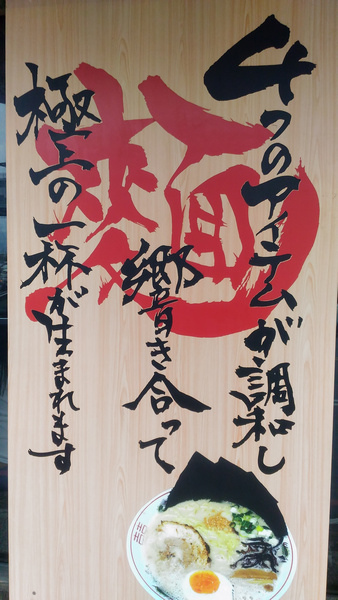 4つのアイテムが調和し
響き合って
極上の一杯が生まれます
麺